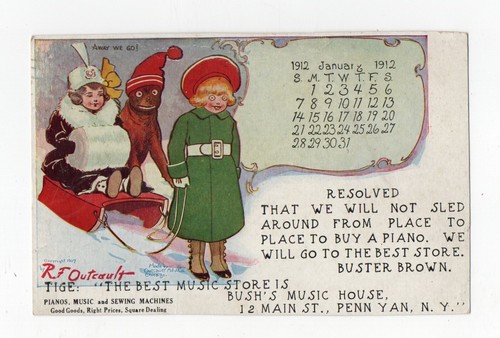 AWAY WE GO!
1912 January 1912
S. M. T. W. T. F. S.
1 2 3 4 5 6
7 8 9 10 11 12 13
14 15 16 17 18 19 20
21 22 23 24 25 26 27
28 29 30 31
RESOLVED
THAT WE WILL NOT SLED
AROUND FROM PLACE TO
PLACE TO BUY A PIANO. WE
WILL GO TO THE BEST STORE.
BUSTER BROWN.
R F Outcault
TIGE: "THE BEST MUSIC STORE IS
BUSH'S MUSIC HOUSE,
12 MAIN ST., PENN YAN, N. Y."
PIANOS, MUSIC and SEWING MACHINES
Good Goods, Right Prices, Square Dealing